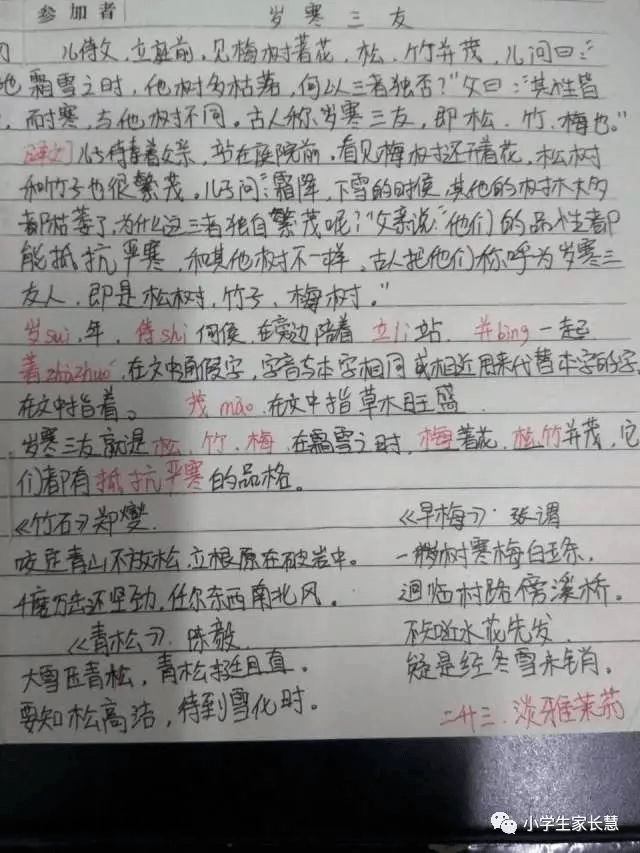 参加者 岁寒三友
儿侍父，立庭前，见梅树着花，松、竹并茂，儿问曰："
霜雪之时，他树多枯落，何以三者独否？"父曰："其性皆
，而耐寒，与他树不同。古人称岁寒三友，即松、竹、梅也。"
[译文]儿子侍奉着父亲，站在庭院前，看见梅树还开着花，松树
和竹子也很繁茂。儿子问："霜降，下雪的时候，其他的树木大多
都枯萎了，为什么这三者独自繁茂呢？"父亲说"他们的品性都
能抵抗严寒，和其他树不一样，古人把他们称呼为岁寒三
友人，即是松树，竹子，梅树。"
岁suì.年，侍shì伺候，在旁边陪着 立lì站. 并bìng一起
着zháozhuó.在文中通假字，字音与本字相同或相近用来代替本字的字，
在文中指着。 茂mào.在文中指草木旺盛.
岁寒三友就是松、竹、梅.在霜雪之时，梅着花，松竹并茂，它
们都有抵抗严寒的品格。
《竹石》郑燮. 《早梅》. 张谓
咬定青山不放松，立根原在破岩中。 一树寒梅白玉条，
千磨万击还坚劲，任尔东西南北风。 迥临村路傍溪桥。
《青松》. 陈毅. 不知近水花先发，
大雪压青松，青松挺且直。 疑是经冬雪未销。
要知松高洁，待到雪化时。 二廿三.淡雅茉莉
小学生家长慧